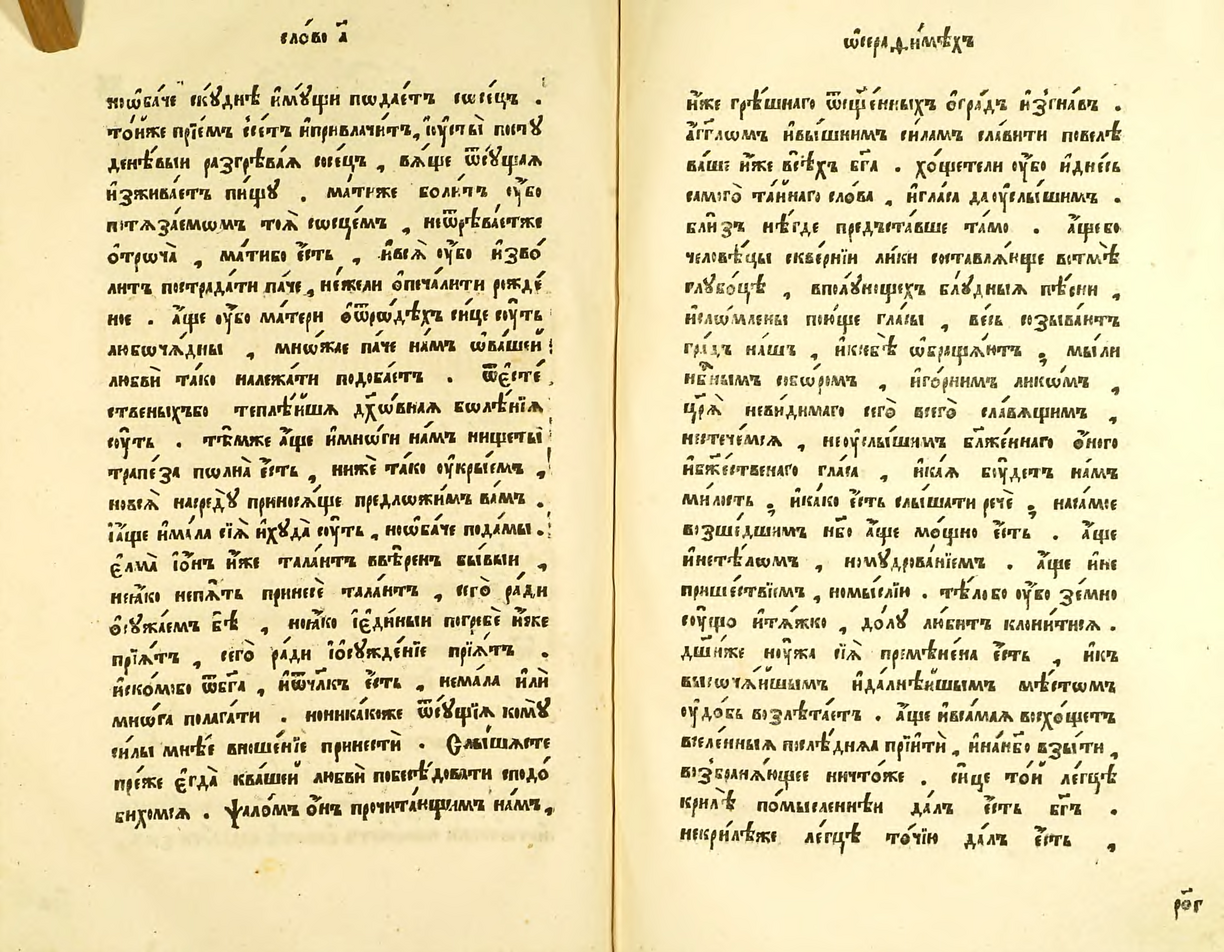 сло́во а҃
ноѡба́че ску́днѣ и҆му́щи пѡдае́тъ сѡсе́цъ .
то́йже прїе́мъ ѐсе́тъ и҆привлачи́тъ, и҆ѹсты̀ посту
дене́выи разгрѣва́ѧ сосе́цъ , вѧ́ще ѿсу́щаѧ
и҆зжива́етъ пи́щꙋ . ма́тиже боли́тъ оу҆́бо
и҆стѧза́емѡмъ тоѧ̀ сѡсце́мъ , неѿрѣва́етже
ѻ҆троча̀ , ма́тибо є҆́сть , и҆всѧ̀ оу҆́бо и҆зво́
литъ пострада́ти па́че , не́жели ѻ҆печа́лити рожде́
ное . а҆́ще оу҆́бо ма́тери ѽѡродѣ́хъ си́це сѹ́ть
любочѧ́дны , мно́жае па́че на́мъ ѡ҆ва́шей
любвѝ та́ко належа́ти подоба́етъ . ѿе҆сте́
ственыхъбо теплѣ́йшѧ дх҃о́внаѧ бѡлѣ́нїѧ
сѹ́ть . тѣ́мже а҆́ще и҆мно́ги на́мъ нищеты̀
трапе́за пѡлна̀ є҆́сть , нижѐ та́ко оу҆кры́емъ ,
новсѧ̀ насредꙋ̀ принося́ще предложи́мъ ва́мъ .
і҆а҆́ще и҆ма́ла сїѧ̀ и҆худа̀ сѹ́ть , но ѻ҆ба́че пода́мы .
є҆лма̀ і҆ѻ́нъ и҆́же тала́нтъ ввѣ́ренъ бы́выи ,
неꙗ҆́ко непѧ́ть принесѐ тала́нтъ , сего̀ ра́ди
ѻ҆сужа́емъ бѣ̀ , ноꙗ҆́ко і҆є҆ди́ныи погребѐ и҆́же
прїѧ́тъ , сего̀ ра́ди і҆ѻ҆сужде́нїе прїѧ́тъ .
и҆ско́мобо ѿбг҃а , и҆ѿчл҃къ є҆́сть , нема́ла и҆лѝ
мно́га полага́ти . нони́какоже ѿсу́щїѧ комꙋ̀
си́лы мнѣ́е вноше́нїе принестѝ . Слы́шасте
пре́же є҆гда̀ ква́шей любвѝ побесѣ́довати сподо́
бихомсѧ . ѱало́мъ ѻ҆́нъ прочита́ющимъ на́мъ,
ѡ҆серафи́мѣхъ
и҆́же грѣ́шнаго ѿсщ҃е́нныхъ ѻ҆гра́дъ и҆згна́въ .
а҆́гг҃лѡмъ и҆вы́шнимъ си́ламъ сла́вити повелѣ̀
ва́ше и҆́же всѣ́хъ бг҃а . хо́щетели оу҆́бо и҆дне́сь
самого̀ та́йнаго сло́ва , и҆гла́са даоу҆слы́шимъ .
бли́зъ нѣ́где предъста́вше та́мо . а҆́щебо
человѣ́цы скве́рнїи ли́ки составлѧ́юще вотмѣ̀
глубо́цѣ , вполу́нощехъ блу́дныѧ пѣ́сни ,
и҆сло́млены пою́ще гла́сы , весь созыва́ютъ
гра́дъ на́шъ , и҆ксебѣ̀ ѡ҆браща́ютъ , мы́ли
нб҃нымъ собо́ромъ , и҆го́рнимъ ликѡ́мъ ,
цр҃ѧ̀ неви́димаго сего̀ всего̀ сла́вѧщимъ ,
нестече́мсѧ , неоу҆слы́шимъ бл҃же́ннаго ѻ҆́ного
и҆бж҃е́ственаго гла́са , и҆ка́ѧ бѹ́детъ на́мъ
ми́лость , и҆ка́ко є҆́сть слы́шати речѐ , наса́мое
возше́дшимъ нб҃о а҆́ще мо́щно є҆́сть . а҆́ще
и҆нетѣ́лѡмъ , номудрова́нїемъ . а҆́ще и҆не
прише́ствїемъ , номы́слїю . тѣ́лобо оу҆́бо зе́мно
сѹ́що и҆тѧ́жко , до́лꙋ лю́битъ клони́тисѧ .
дш҃и́же ну́жа сїѧ̀ премѣне́на є҆́сть , и҆къ
высоча́йшымъ и҆далнѣ́йшымъ мѣстѡ́мъ
оу҆до́бь возлѣта́етъ . а҆́ще и҆вса́маѧ восхо́щетъ
вселе́нныѧ послѣ́днѧѧ прїитѝ , и҆нанб҃о взы́ти ,
возбранѧ́ющее ничто́же . си́це то́й легцѣ̀
крилѣ̀ по́мысленнѣи да́лъ є҆́сть бг҃ъ .
некрилѣ́же легцѣ̀ то́чїю да́лъ є҆́сть ,
рѻ҃г